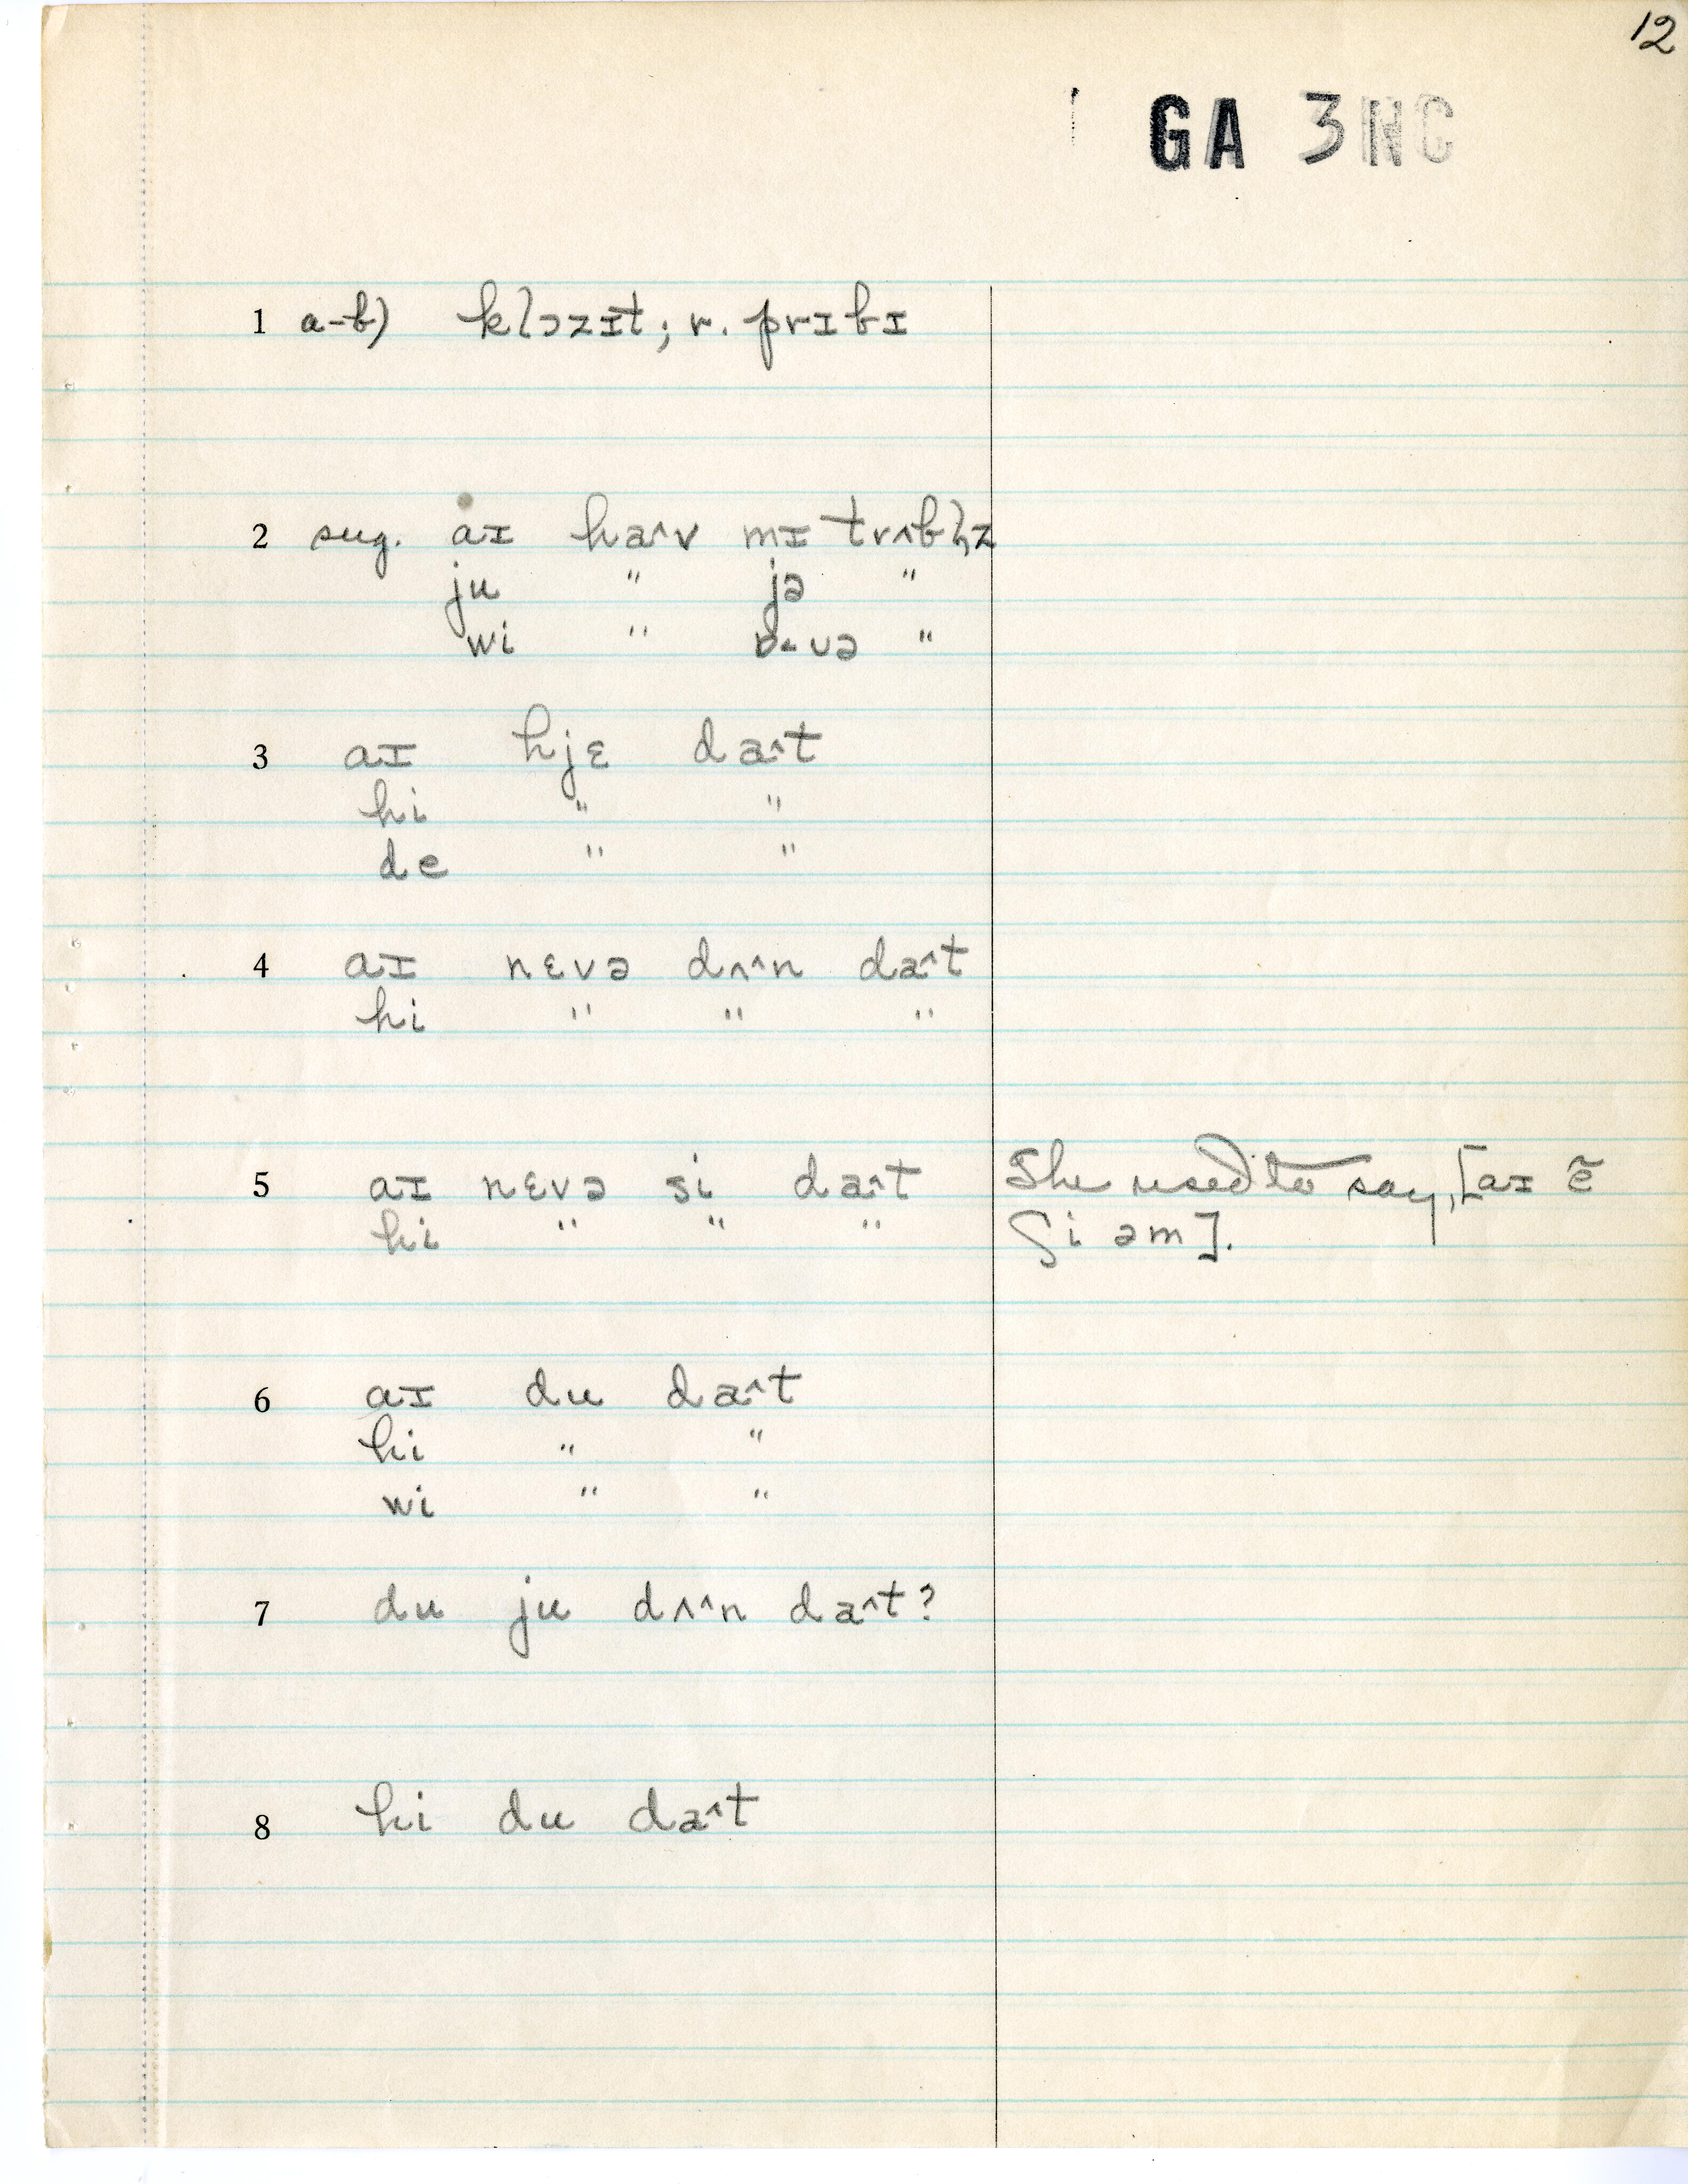 12
GA 3NC
1 a-b) klɔzɪt; r. prɪbɪ
2 sug. aɪ ha^v mɪ trʌbl̩z
ju " jə "
wi " "
3 aɪ hjɛ da^t
hi " "
de " "
4 aɪ nɛvə dʌ^n da^t
hi " " "
5 aɪ nɛvə si da^t She used to say, [aɪ ẽ
hi " " " ʃi əm].
6 aɪ du da^t
hi " "
wi " "
7 du ju dʌ^n da^t?
8 hi du da^t